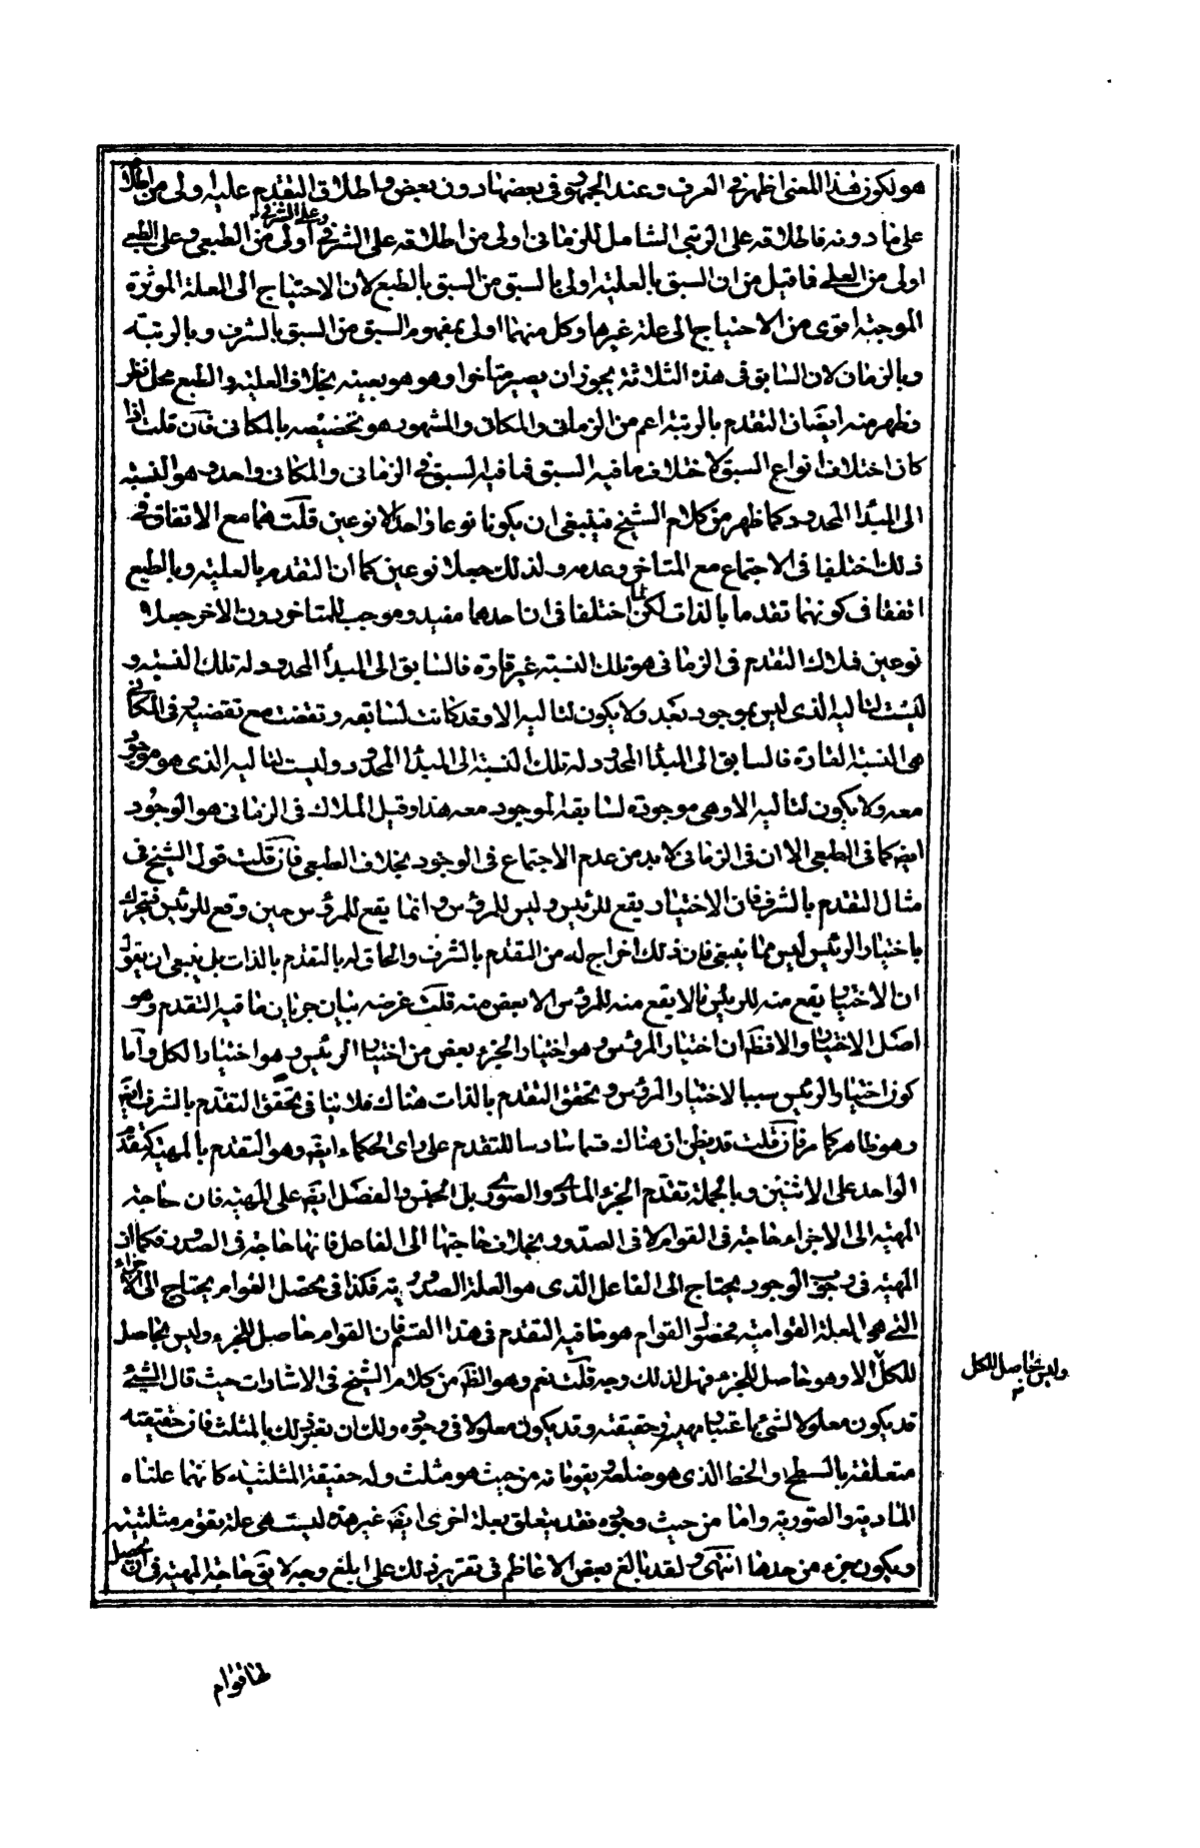 هو لكون هذا المعنى اظهر فى العرف وعند الجمهور فى بعضها دون بعض واطلاق التقدم عليه اولى من اطلاقه
على ما دونه فاطلاقه على الرتبى الشامل للزمانى اولى من اطلاقه على الشرفى وعلى الشرفى اولى من الطبعى وعلى الطبعى
اولى من العلى فما قيل من ان السبق بالعلية اولى بالسبق من السبق بالطبع لان الاحتياج الى العلة المؤثرة
الموجبة اقوى من الاحتياج الى علة غيرها وكل منهما اولى بمفهوم السبق من السبق بالشرف وبالرتبة
وبالزمان لان السابق فى هذه الثلاثة يجوز ان يصير متأخرا وهو هو بعينه بخلاف العلية والطبع محل نظر
وظهر منه ايضا ان التقدم بالرتبة اعم من الزمانى والمكانى والمشهور هو تخصيصه بالمكانى فان قلت اذا
كان اختلاف انواع السبق لاختلاف ما فيه السبق فما فيه السبق فى الزمانى والمكانى واحد وهو النسبة
الى المبدأ المحدود كما ظهر من كلام الشيخ فينبغى ان يكونا نوعا واحدا لا نوعين قلت هما مع الاتفاق فى
ذلك اختلفا فى الاجتماع مع المتاخر وعدمه ولذلك جعلا نوعين كما ان التقدم بالعلية وبالطبع
اتفقا فى كونهما تقدما بالذات لكن لما اختلفا فى ان احدهما مفيد وموجب للمتاخر دون الاخر جعلا
نوعين فملاك التقدم فى الزمانى هو تلك النسبة غير قارة فالسابق الى المبدأ المحدود له تلك النسبة و
ليست لتاليه الذى ليس بموجود بعد ولا يكون لتاليه الا وقد كانت لسابقه وتقضت مع تقضيه وفى المكانى
هى النسبة القارة فالسابق الى المبدأ المحدود له تلك النسبة الى المبدأ المحدود وليست لتاليه الذى هو موجود
معه ولا يكون لتاليه الا وهى موجودة لسابقه الموجود معه هذا وقيل الملاك فى الزمانى هو الوجود
ايضا كما فى الطبعى الا ان فى الزمانى لا بد من عدم الاجتماع فى الوجود بخلاف الطبعى فان قلت قول الشيخ فى
مثال التقدم بالشرف فان الاختيار يقع للرئيس وليس للمرؤس وانما يقع للمرؤس حين وقع للرئيس فيتحرك
باختيار الرئيس ليس مما ينبغى فان ذلك اخراج له من التقدم بالشرف والحاق له بالتقدم بالذات بل ينبغى ان يقول
ان الاختيار يقع منه للرئيس ما لا يقع منه للمرؤس الا بعض منه قلت غرضه بيان جريان ما فيه التقدم وهو
اصل الاختيار والا فظ ان اختيار المرؤس وهو اختيار الجزء بعض من اختيار الرئيس وهو اختيار الكل واما
كون اختيار الرئيس سببا لاختيار المرؤس وتحقق التقدم بالذات هناك فلا ينافى تحقق التقدم بالشرف ايضا
وهو ظاهر كما مر فان قلت قد يظن ان هناك قسما سادسا للتقدم على راى الحكماء ايضا وهو التقدم بالمهية كتقدم
الواحد على الاثنين وبالجملة تقدم الجزء المادى والصورى بل الجنس والفصل ايضا على المهية فان حاجة
المهية الى الاجزاء حاجة فى القوام لا فى الصدور بخلاف حاجتها الى الفاعل فانها حاجة فى الصدور فكما ان
المهية فى وجوب الوجود يحتاج الى الفاعل الذى هو العلة الصدورية فكذا فى تحصل القوام يحتاج الى الاجزاء
التى هى العلة القوامية فحصول القوام هو ما فيه التقدم فى هذا القسم فان القوام حاصل للجزء وليس بحاصل
للكل الا وهو حاصل للجزء فهل لذلك وجه قلت نعم وهو الظ من كلام الشيخ فى الاشارات حيث قال الشئ
قد يكون معلولا لشئ باعتبار مهيته وحقيقته وقد يكون معلولا فى وجوده ولك ان تعتبر ذلك بالمثلث فان حقيقته
متعلقة بالسطح والخط الذى هو ضلعه ويقومانه من حيث هو مثلث وله حقيقة المثلثية كانهما علتاه
المادية والصورية واما من حيث وجوده فقد يتعلق بعلة اخرى ايضا غير هذه ليست هى علة يقوم مثلثيته
ويكون جزء من حدها انتهى ولقد بالغ بعض الاعاظم فى تقرير ذلك على ابلغ وجه لا يق حاجة المهية فى ان تحصيل
وليس بحاصل للكل
لها قوام